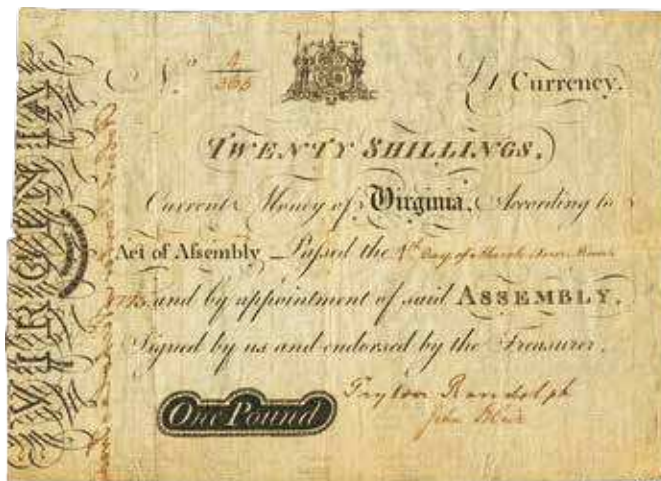 VIRGINIA
No. 4
365
£1 Currency.
TWENTY SHILLINGS.
Current Money of Virginia, According to
Act of Assembly Passed the 4th Day of March
1773 and by appointment of said ASSEMBLY.
Signed by us and endorsed by the Treasurer.
One Pound
Peyton Randolph
John Blair